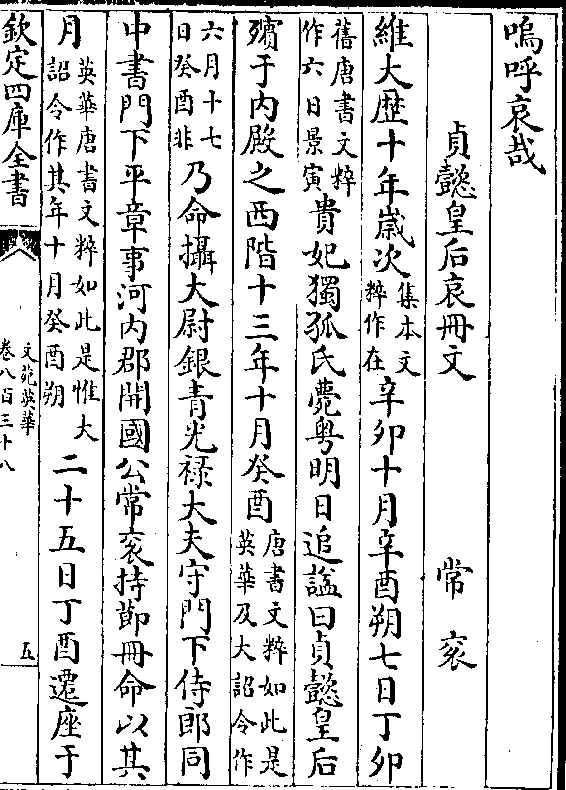 嗚呼哀哉
貞懿皇后哀冊文 常衮
維大歴十年嵗次集本文粹作在辛卯十月辛酉朔七日丁卯
舊唐書文粹作六日景寅貴妃獨孤氏薨粤明日追諡曰貞懿皇后
殯于内殿之西階十三年十月癸酉唐書文粹如此是英華及大詔令作
六月十七日癸酉非乃命攝大尉銀青光禄大夫守門下侍郎同
中書門下平章事河内郡開國公常衮持節冊命以其
月英華唐書文粹如此是惟大詔令作其年十月癸酉朔二十五日丁酉遷座于
欽定四庫全書
文苑英華
卷八百三十八
五